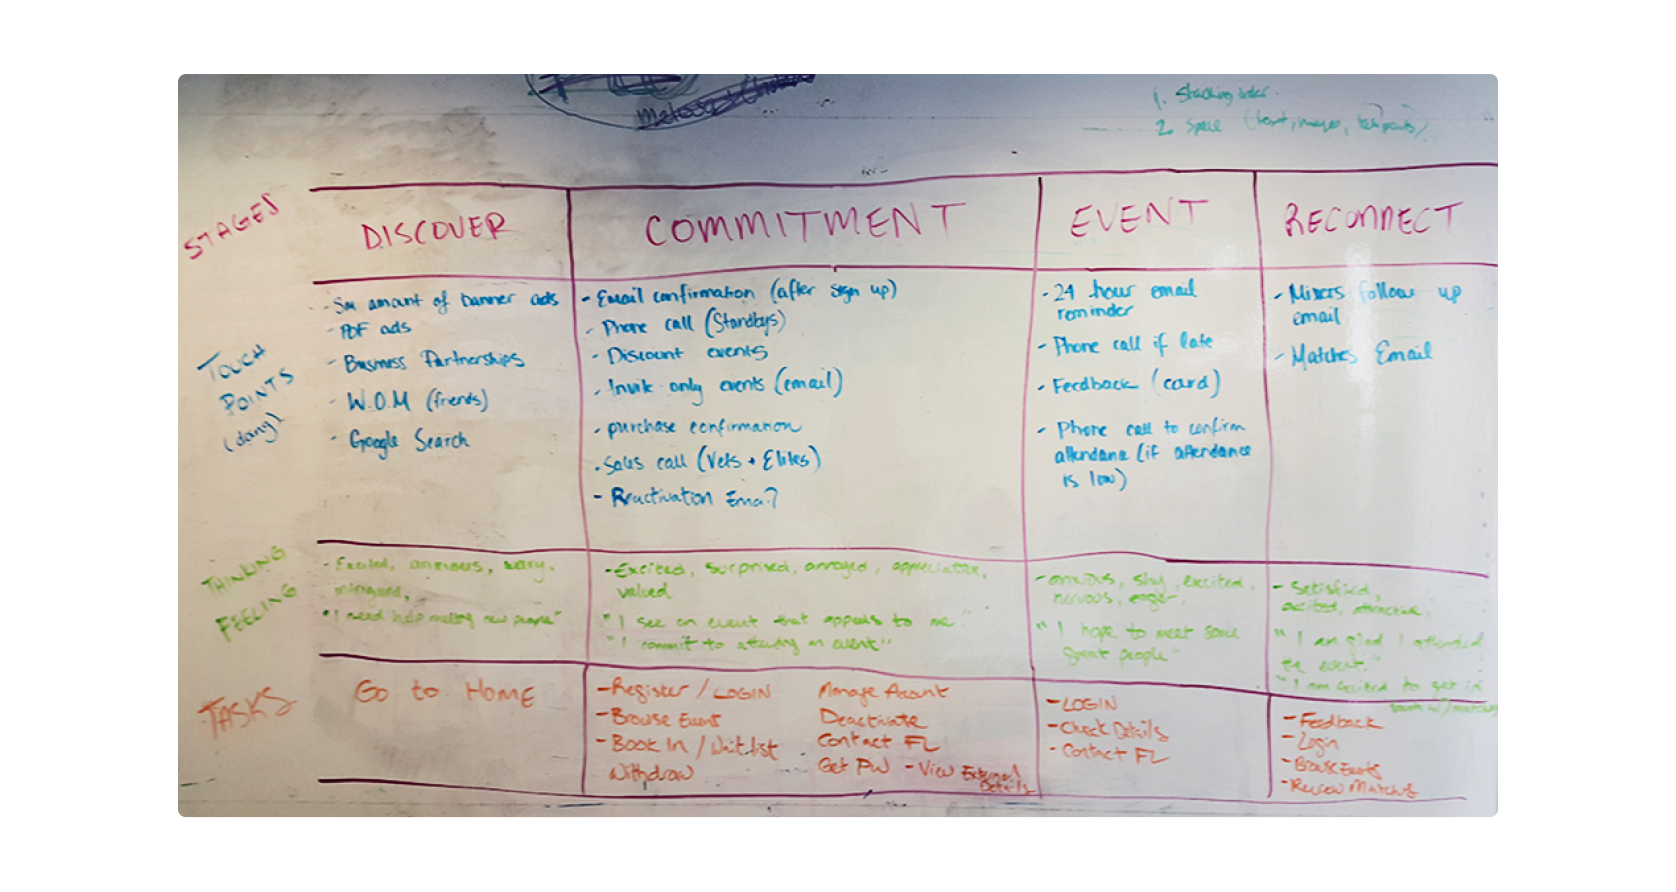 1. Stacking order.
2. Space (text, images, touchpoints)
STAGES
DISCOVER
COMMITMENT
EVENT
RECONNECT
TOUCH
POINTS
(dang)
- Sm amount of banner ads
- PDF ads
- Business Partnerships
- W.O.M (friends)
- Google Search
- Email confirmation (after sign up)
- Phone call (Standbys)
- Discount events
- Invite only events (email)
- purchase confirmation
- Sales call (Vets + Elites)
- Reactivation Email
- 24 hour email
reminder
- Phone call if late
- Feedback (card)
- Phone call to confirm
attendance (if attendance
is low)
- Mixers follow up
email
- Matches Email
THINKING
FEELING
- Excited, anxious, wary,
"I need help meeting new people"
- Excited, surprised, annoyed, appreciative,
valued
"I see an event that appeals to me"
"I commit to attending an event"
- anxious, shy, excited,
nervous, eager,
"I hope to meet some
great people"
- Satisfied,
excited,
"I am glad I attended
the event."
"I am excited to get in
touch w/ matches
TASKS
Go to Home
- Register / LOGIN
- Browse Event
- Book In / Waitlist
Withdraw
Manage Account
Deactivate
Contact FL
Get PW - View External
Details
- LOGIN
- Check Details
- Contact FL
- Feedback
- Login
- Browse Events
- Review Matches